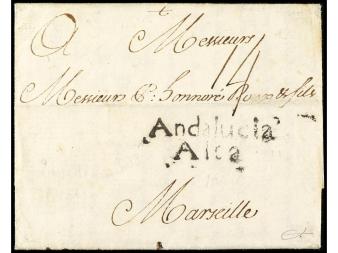 A Messieurs
14
Messieurs Honnoré Roux & fils
Andalucia
Alca
Marseille